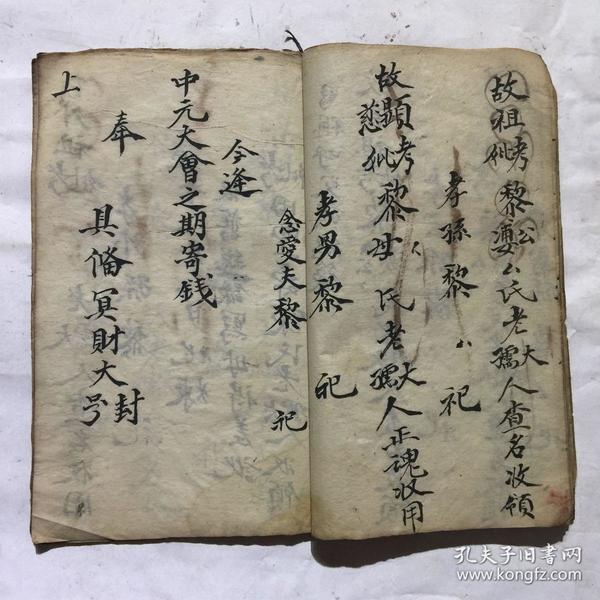 故祖考妣黎公婆厶氏老大孺人查名收領
孝孫黎厶祀
故顯考慈妣黎母厶氏老大孺人正魂收用
孝男黎祀
念愛夫黎祀
今逢
中元大會之期寄錢
奉
上
具俻冥財大封号
孔夫子旧书网
www.kongfz.com